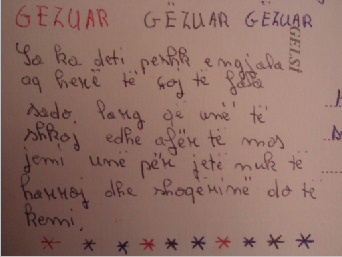 GEZUAR GËZUAR GËZUAR
GELSI
Sa ka deti peshk e ngjala
aq herë të çoj të fala
sado, larg që unë të
shkoj edhe afër të mos
jemi unë për jetë nuk të
harroj dhe shoqërinë do të
kemi.